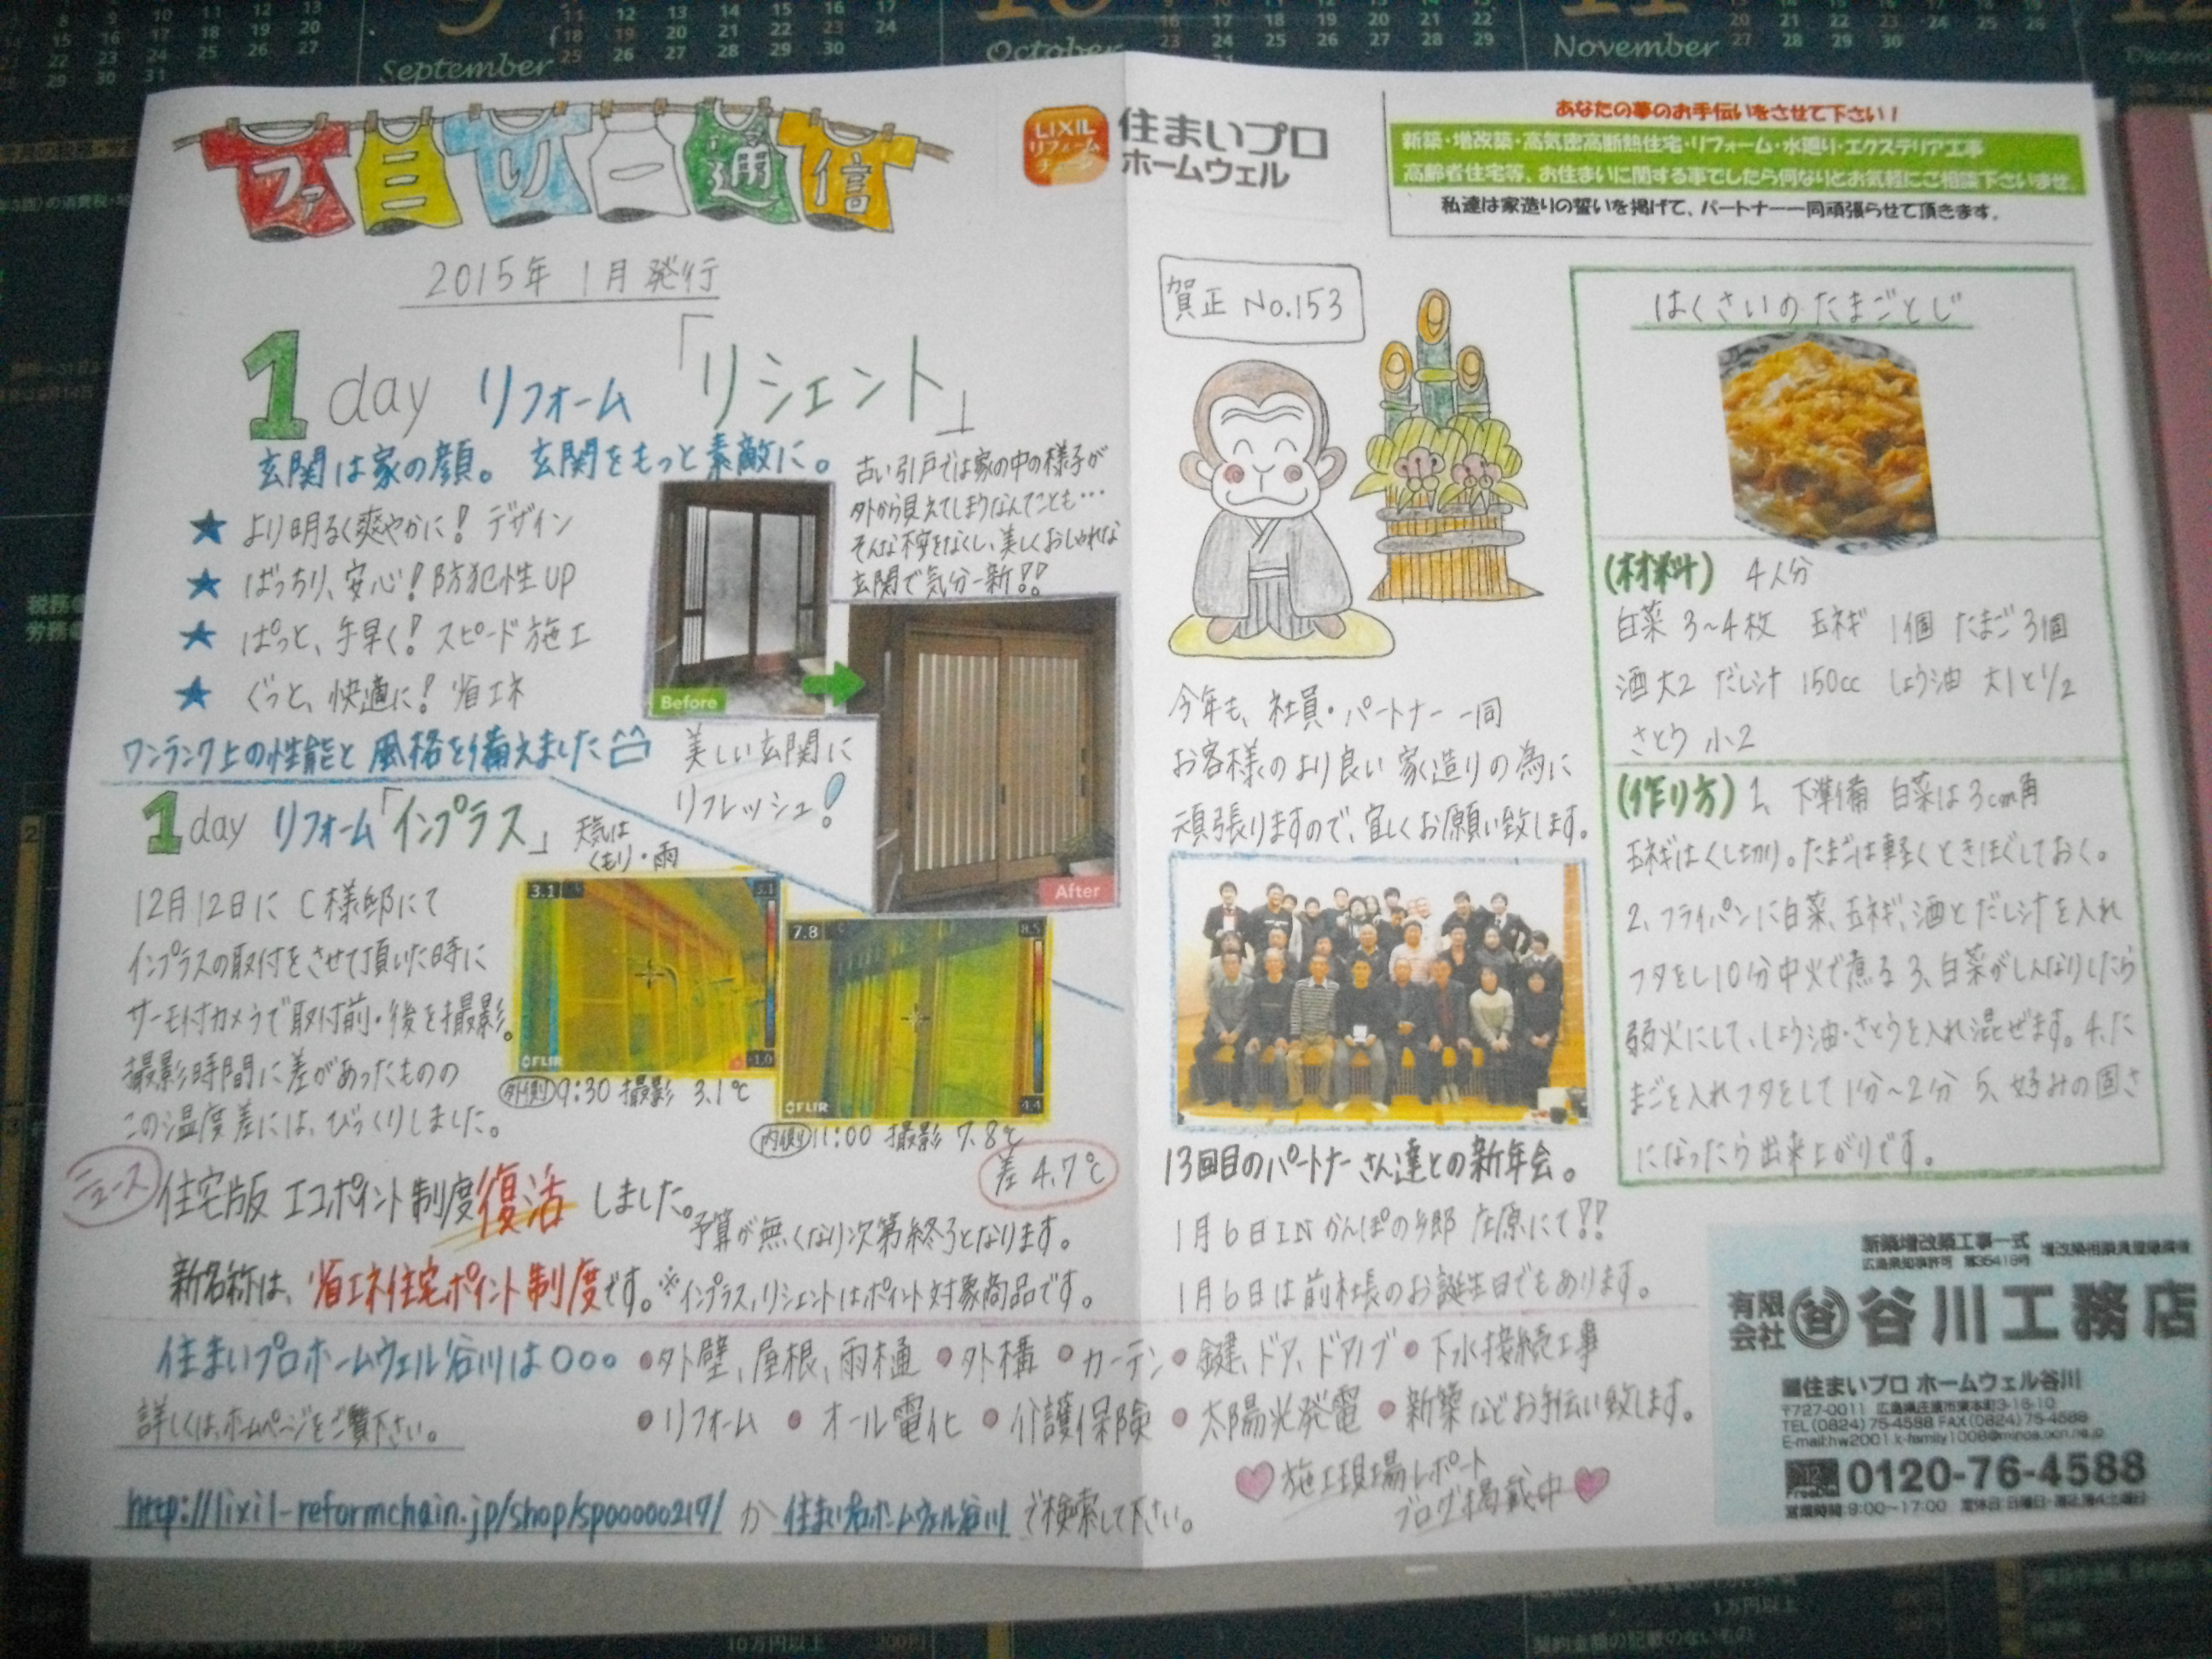 ファミリー通信
2015年 1月 発行
1 day リフォーム 「リシェント」
玄関は家の顔。 玄関をもっと素敵に。
★ より明るく爽やかに! デザイン
★ ばっちり、安心! 防犯性UP
★ ぱっと、手早く! スピード施工
★ ぐっと、快適に! 省エネ
ワンランク上の性能と風格を備えました
古い引戸では家の中の様子が
外から見えてしまうなんてことも…
そんな不安をなくし、美しくおしゃれな
玄関で気分一新!!
Before
After
美しい玄関に
リフレッシュ!
1 day リフォーム「インプラス」
天気は
くもり・雨
12月12日に C様邸にて
インプラスの取付をさせて頂いた時に
サーモ付カメラで取付前・後を撮影。
撮影時間に差があったものの
この温度差には、びっくりしました。
3.1
3.1
-1.0
FLIR
外側 9:30 撮影 3.1℃
7.8
8.5
4.4
FLIR
内側 11:00 撮影 7.8℃
差 4.7℃
ニュース 住宅版 エコポイント制度復活 しました。
予算が無くなり次第終了となります。
新名称は、省エネ住宅ポイント制度です。※インプラス、リシェントはポイント対象商品です。
住まいプロホームウェル谷川は○○○ ●外壁、屋根、雨樋 ●外構 ●カーテン ●鍵、ドア、ドアノブ ●下水接続工事
詳しくは、ホームページをご覧下さい。 ●リフォーム ●オール電化 ●介護保険 ●太陽光発電 ●新築などお手伝い致します。
http://lixil-reformchain.jp/shop/sp00000217/ か 住まいプロホームウェル谷川 で検索して下さい。
施工現場レポート
ブログ掲載中
LIXIL
リフォーム
チェーン
住まいプロ
ホームウェル
あなたの夢のお手伝いをさせて下さい!
新築・増改築・高気密高断熱住宅・リフォーム・水廻り・エクステリア工事
高齢者住宅等、お住まいに関する事でしたら何なりとお気軽にご相談下さいませ。
私達は家造りの誓いを掲げて、パートナー一同頑張らせて頂きます。
賀正 No.153
今年も、社員・パートナー 一同
お客様のより良い 家造りの為に
頑張りますので、宜しくお願い致します。
13回目のパートナーさん達との新年会。
1月6日 IN かんぽの郷 庄原にて!!
1月6日は前社長のお誕生日でもあります。
はくさいのたまごとじ
(材料) 4人分
白菜 3~4枚 玉ネギ 1個 たまご 3個
酒 大2 だし汁 150cc しょう油 大1と1/2
さとう 小2
(作り方) 1、下準備 白菜は3cm角
玉ネギはくし切り。たまごは軽くときほぐしておく。
2、フライパンに白菜、玉ネギ、酒とだし汁を入れ
フタをし10分中火で煮る 3、白菜がしんなりしたら
弱火にして、しょう油・さとうを入れ混ぜます。4、た
まごを入れフタをして1分~2分 5、好みの固さ
になったら出来上がりです。
新築増改築工事一式 増改築相談員登録商店
広島県知事許可 第35418号
有限会社 谷 谷川工務店
住まいプロ ホームウェル谷川
〒727-0011 広島県庄原市東本町3-16-10
TEL(0824)75-4588 FAX(0824)75-4588
0120-76-4588
営業時間 9:00~17:00 定休日:日曜日・第2・第4土曜日
September
October
November